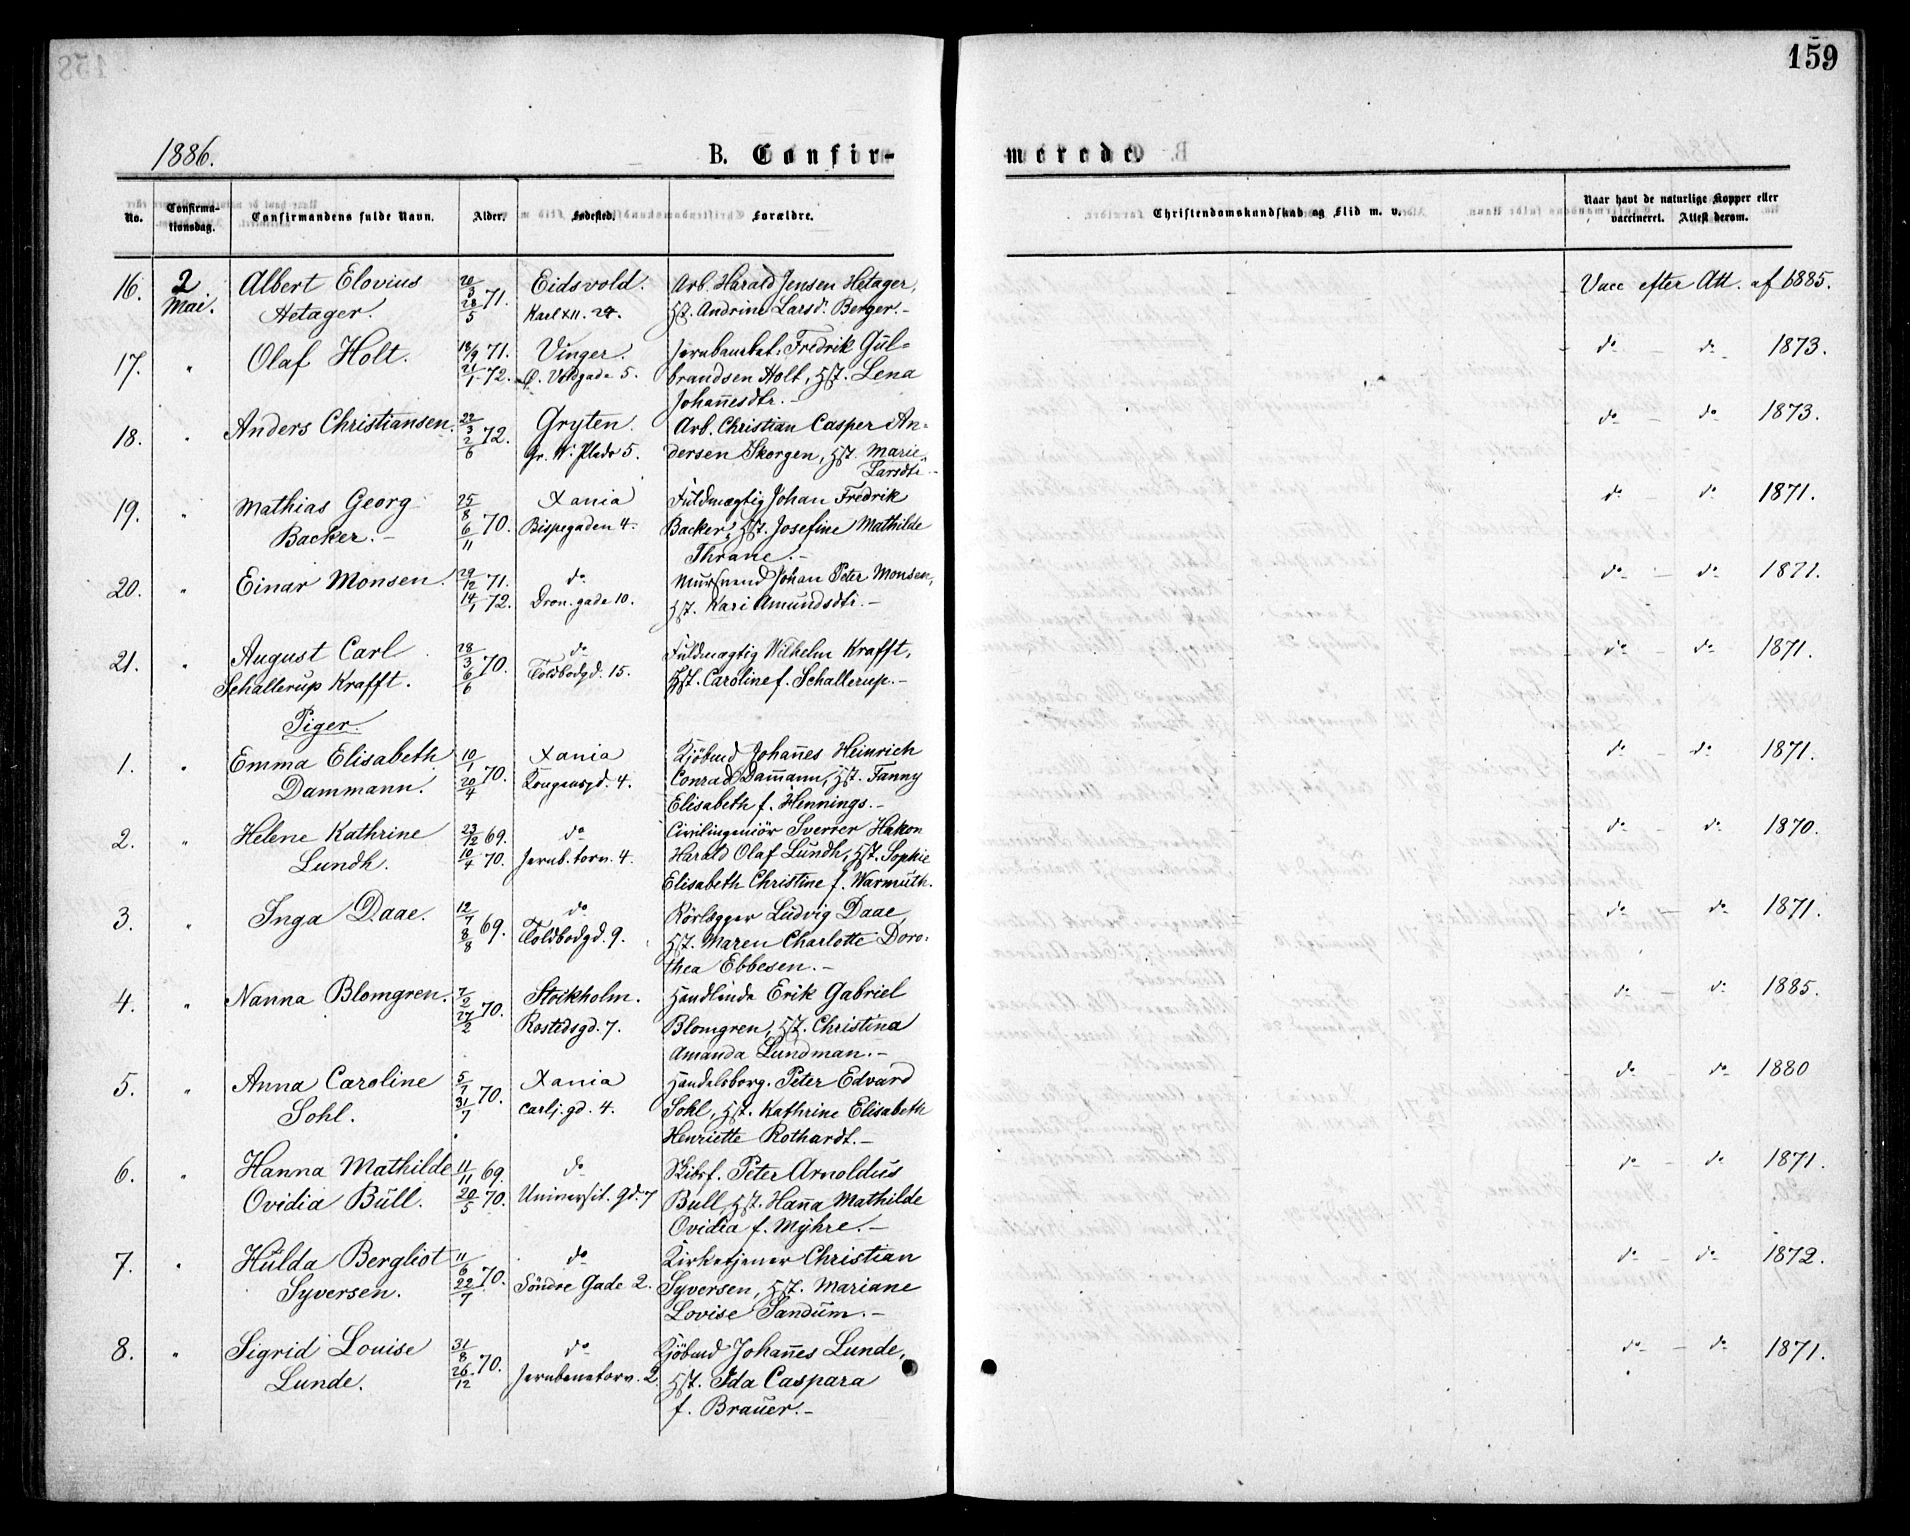 159
1886.
B. Confir-
merede.
No.
Confirma-
tionsdag.
Confirmandens fulde Navn.
Alder.
Fødested.
Forældre.
Christendomskundskab og Flid m. v.
Naar havt de naturlige Kopper eller
vaccineret. Attest derom.
16. 2 Albert Elovius 20/3 71. Eidsvold. Arb. Harald Jensen Hetager, Vacc efter Att. af 1885.
Mai. Hetager. 28/5 Karl XII. 29. Hst. Andrine Larsd. Berger.-
17. " Olaf Holt. 18/9 71. Vinger. Jernbanearbeid. Fredrik Gul- do - do 1873.
21/1 72. Ø. Voldgade 5. brandsen Holt, Hst. Lena
Johannesdtr.-
18. " Anders Christiansen. 22/3 72. Gryten. Arb. Christian Casper An- do - do 1873.
2/6 Gr. W. Plads 5. dersen Skorgen, Hst. Marie
Larsdtr.-
19. " Mathias Georg 25/8 70. Xania Fuldmægtig Johan Fredrik do - do 1871.
Backer.- 6/11 Bispegaden 4. Backer, Hst. Josefine Mathilde
Thrane.-
20. " Einar Monsen. 29/12 71. do Mursvend Johan Peter Monsen, do - do 1871.
14/1 72. Dron. gade 10. Hst. Kari Amundsdtr.-
21. " August Carl 28/3 70. do Fuldmægtig Wilhelm Krafft, do - do 1871.
Schallerup Krafft. 6/6 Toldbodgd. 15. Hst. Caroline f. Schallerup.-
Piger.
1. " Emma Elisabeth 10/1 70. Xania Kjöbmd Johannes Heinrich do - do 1871.
Dammann. 20/4 Kongensgd. 4. Conrad Dammann, Hst. Fanny
Elisabeth f. Hennings.-
2. " Helene Kathrine 23/12 69. do Civilingeniör Sverrer Hakon do - do 1870.
Lundh. 10/4 70. Jernb. torv. 4. Harald Olaf Lundh, Hst. Sophie
Elisabeth Christine f. Warmuth.
3. " Inga Daae. 12/7 69. do Rörlægger Ludvig Daae, do - do 1871.
8/8 Toldbodgd. 9. Hst. Maren Charlotte Doro-
thea Ebbesen.-
4. " Nanna Blomgren. 7/2 70. Stockholm. Handlende Erik Gabriel do - do 1885.
27/2 Rostedsgd. 7. Blomgren, Hst. Christina
Amanda Lundman.-
5. " Anna Caroline 5/7 70. Xania Handelsborg. Peter Edvard do - do 1880
Sohl. 31/7 Carlj. gd. 4. Sohl, Hst. Kathrine Elisabeth
Henriette Rothardt.-
6. " Hanna Mathilde 11/11 69. do Skibsf. Peter Arnoldus do - do 1871.
Ovidia Bull. 20/5 70. Universit. gd. 7 Bull, Hst. Hanna Mathilde
Ovidia f. Myhre.-
7. " Hulda Bergliot 11/6 70. do Kirketjener Christian do - do 1872.
Syversen. 22/7 Söndre Gade 2. Syversen, Hst. Mariane
Lovise Sandum.-
8. " Sigrid Louise 31/8 70. do Kjöbmd Johannes Lunde, do - do 1871.
Lunde. 26/12 Jernbanetorv. 2. Hst. Ida Caspara
f. Brauer.-